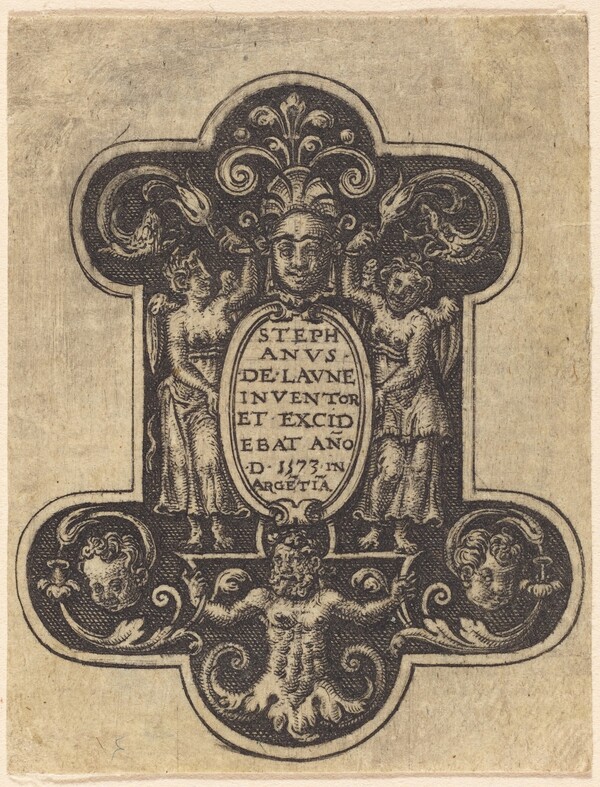 STEPH
ANVS
DE·LAVNE
INVENTOR
ET EXCID
EBAT AÑO
·D·1573 IN
ARGẼTIÃ